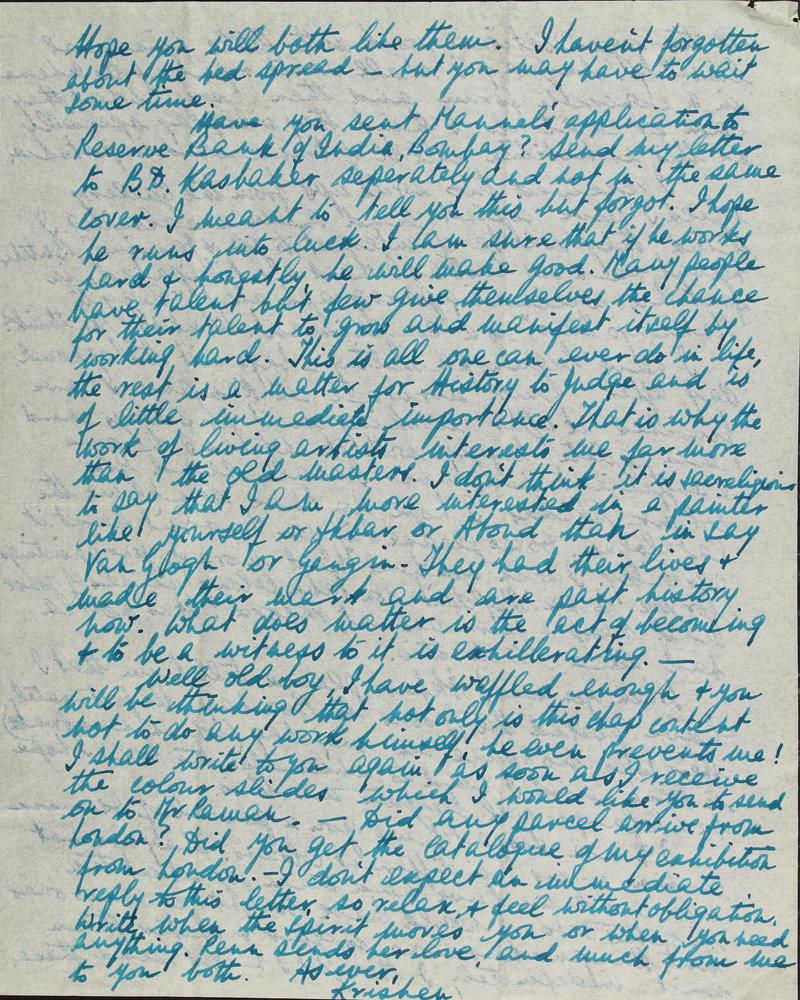 Hope you will both like them. I havent forgotten
about the bed spread - but you may have to wait
some time.
Have you sent Mannel's application to
Reserve Bank of India, Bombay? Send my letter
to B.D. Kasbaker seperately and not in the same
cover. I meant to tell you this but forgot. I hope
he runs into luck. I am sure that if he works
hard & honestly, he will make good. Many people
have talent but few give themselves the chance
for their talent to grow and manifest itself by
working hard. This is all one can ever do in life,
the rest is a matter for History to judge and is
of little immediate importance. That is why the
work of living artists interests me far more
than the old masters. I don't think it is sacreligious
to say that I am more interested in a painter
like yourself or Akbar or Abond than in say
Van Glogh or Gaugin. They had their lives &
made their mark and are past history
now. What does matter is the act of becoming
& to be a witness to it is exhillerating. —
Well old boy, I have waffled enough & you
will be thinking that not only is this chap content
not to do any work himself, he even prevents me!
I shall write to you again as soon as I receive
the colour slides which I would like you to send
on to Mr Raman. — Did any parcel arrive from
London? Did you get the catalogue of my exhibition
from London. - I don't expect an immediate
reply to this letter, so relax & feel without obligation.
Write when the spirit moves you or when you need
anything. Renu sends her love, and much from me
to you both. As ever,
Krishen